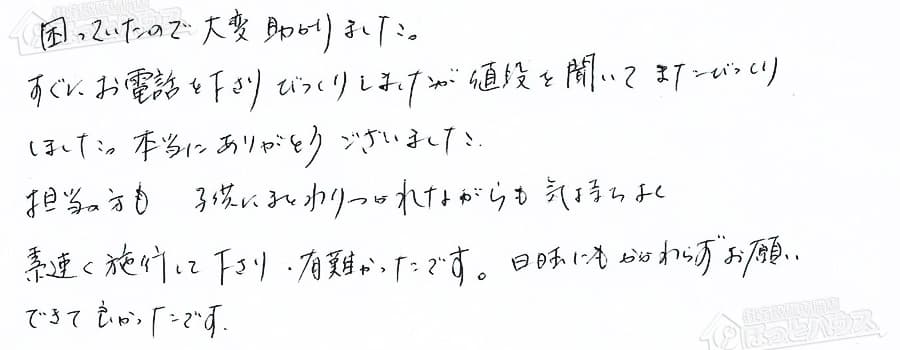 困っていたので大変助かりました。
すぐにお電話を下さりびっくりしましたが値段を聞いてまたびっくり
しました。本当にありがとうございました。
担当の方も 子供にまとわりつかれながらも 気持ちよく
素速く施行して下さり、有難かったです。日時にもかかわらずお願い
できて良かったです。
ほっとハウス